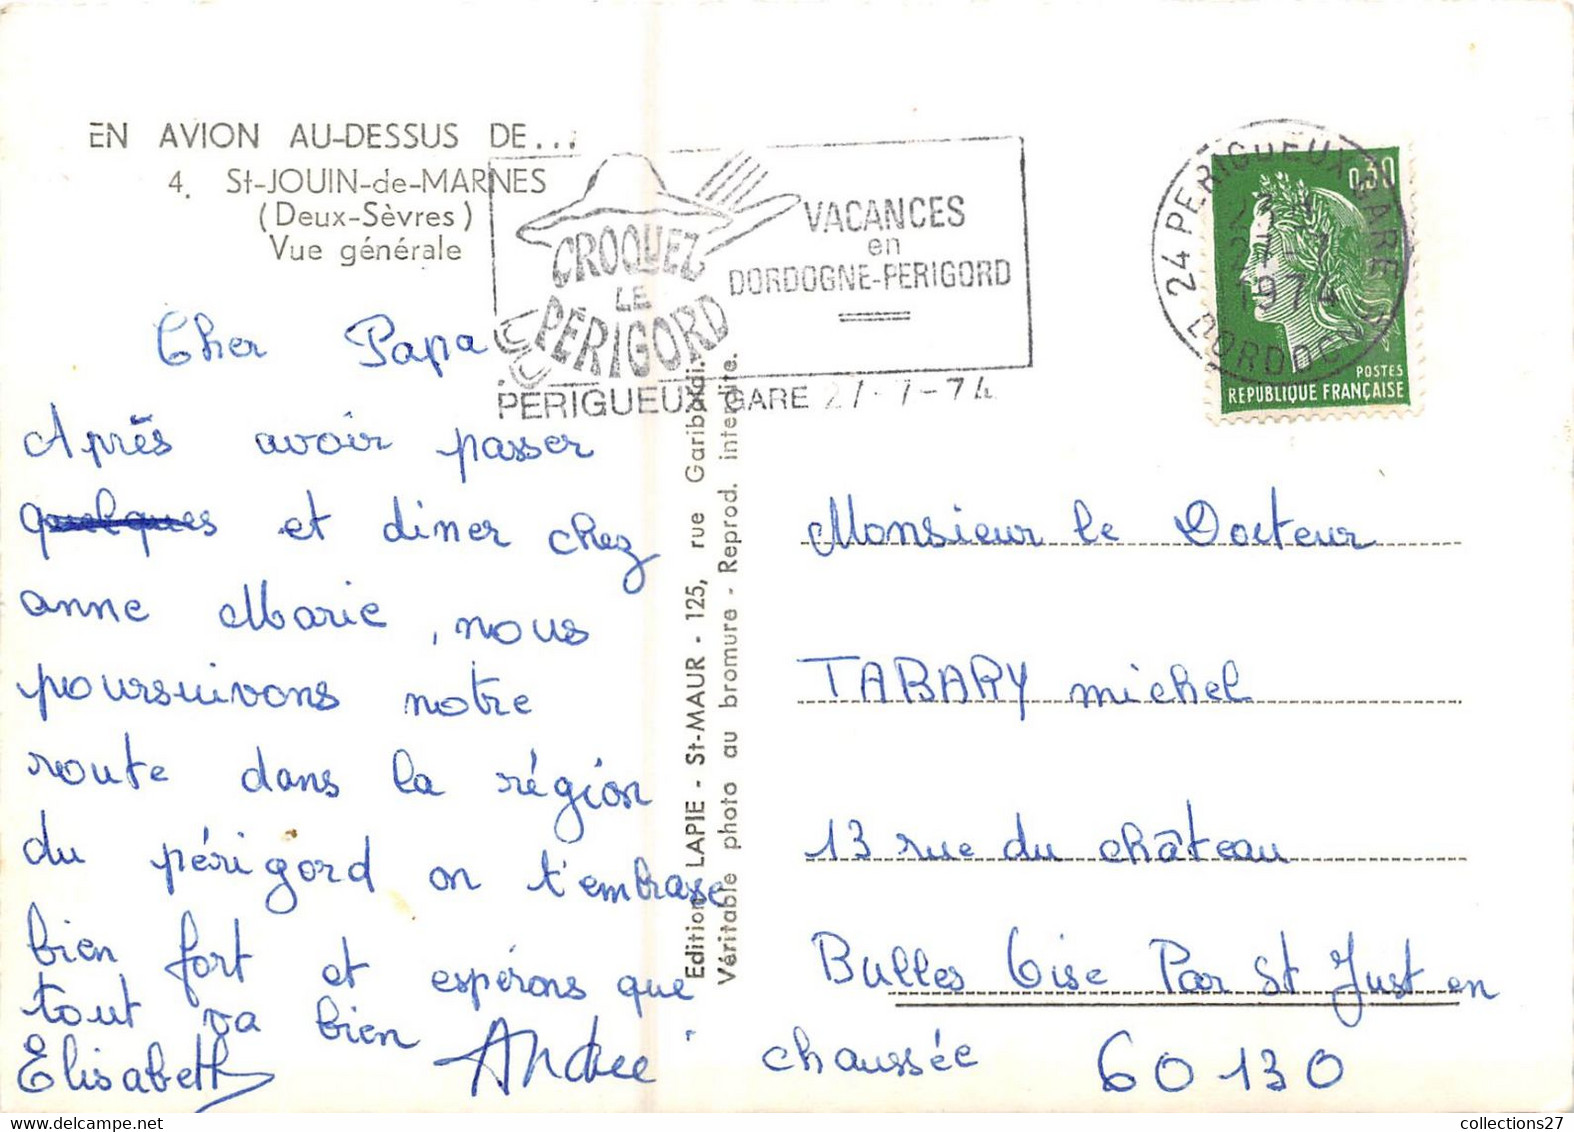 EN AVION AU-DESSUS DE...
4. St-JOUIN-de-MARNES
(Deux-Sèvres)
Vue générale
CROQUEZ
LE
PÉRIGORD
VACANCES
en
DORDOGNE-PERIGORD
PERIGUEUX GARE 27-7-74
24 PERIGUEUX GARE
1974
DORDOGNE
0,30
POSTES
REPUBLIQUE FRANÇAISE
Cher Papa
Après avoir passer
quelques et diner chez
anne Marie, nous
poursuivons notre
route dans la région
du périgord on t'embrasse
bien fort et espérons que
tout va bien
Elisabeth Andrée
Edition LAPIE - St-MAUR - 125, rue Garibaldi.
Véritable photo au bromure - Reprod. interdite.
Monsieur le Docteur
TABARY michel
13 rue du château
Bulles Oise Par St Just en
chaussée 60130
collections27